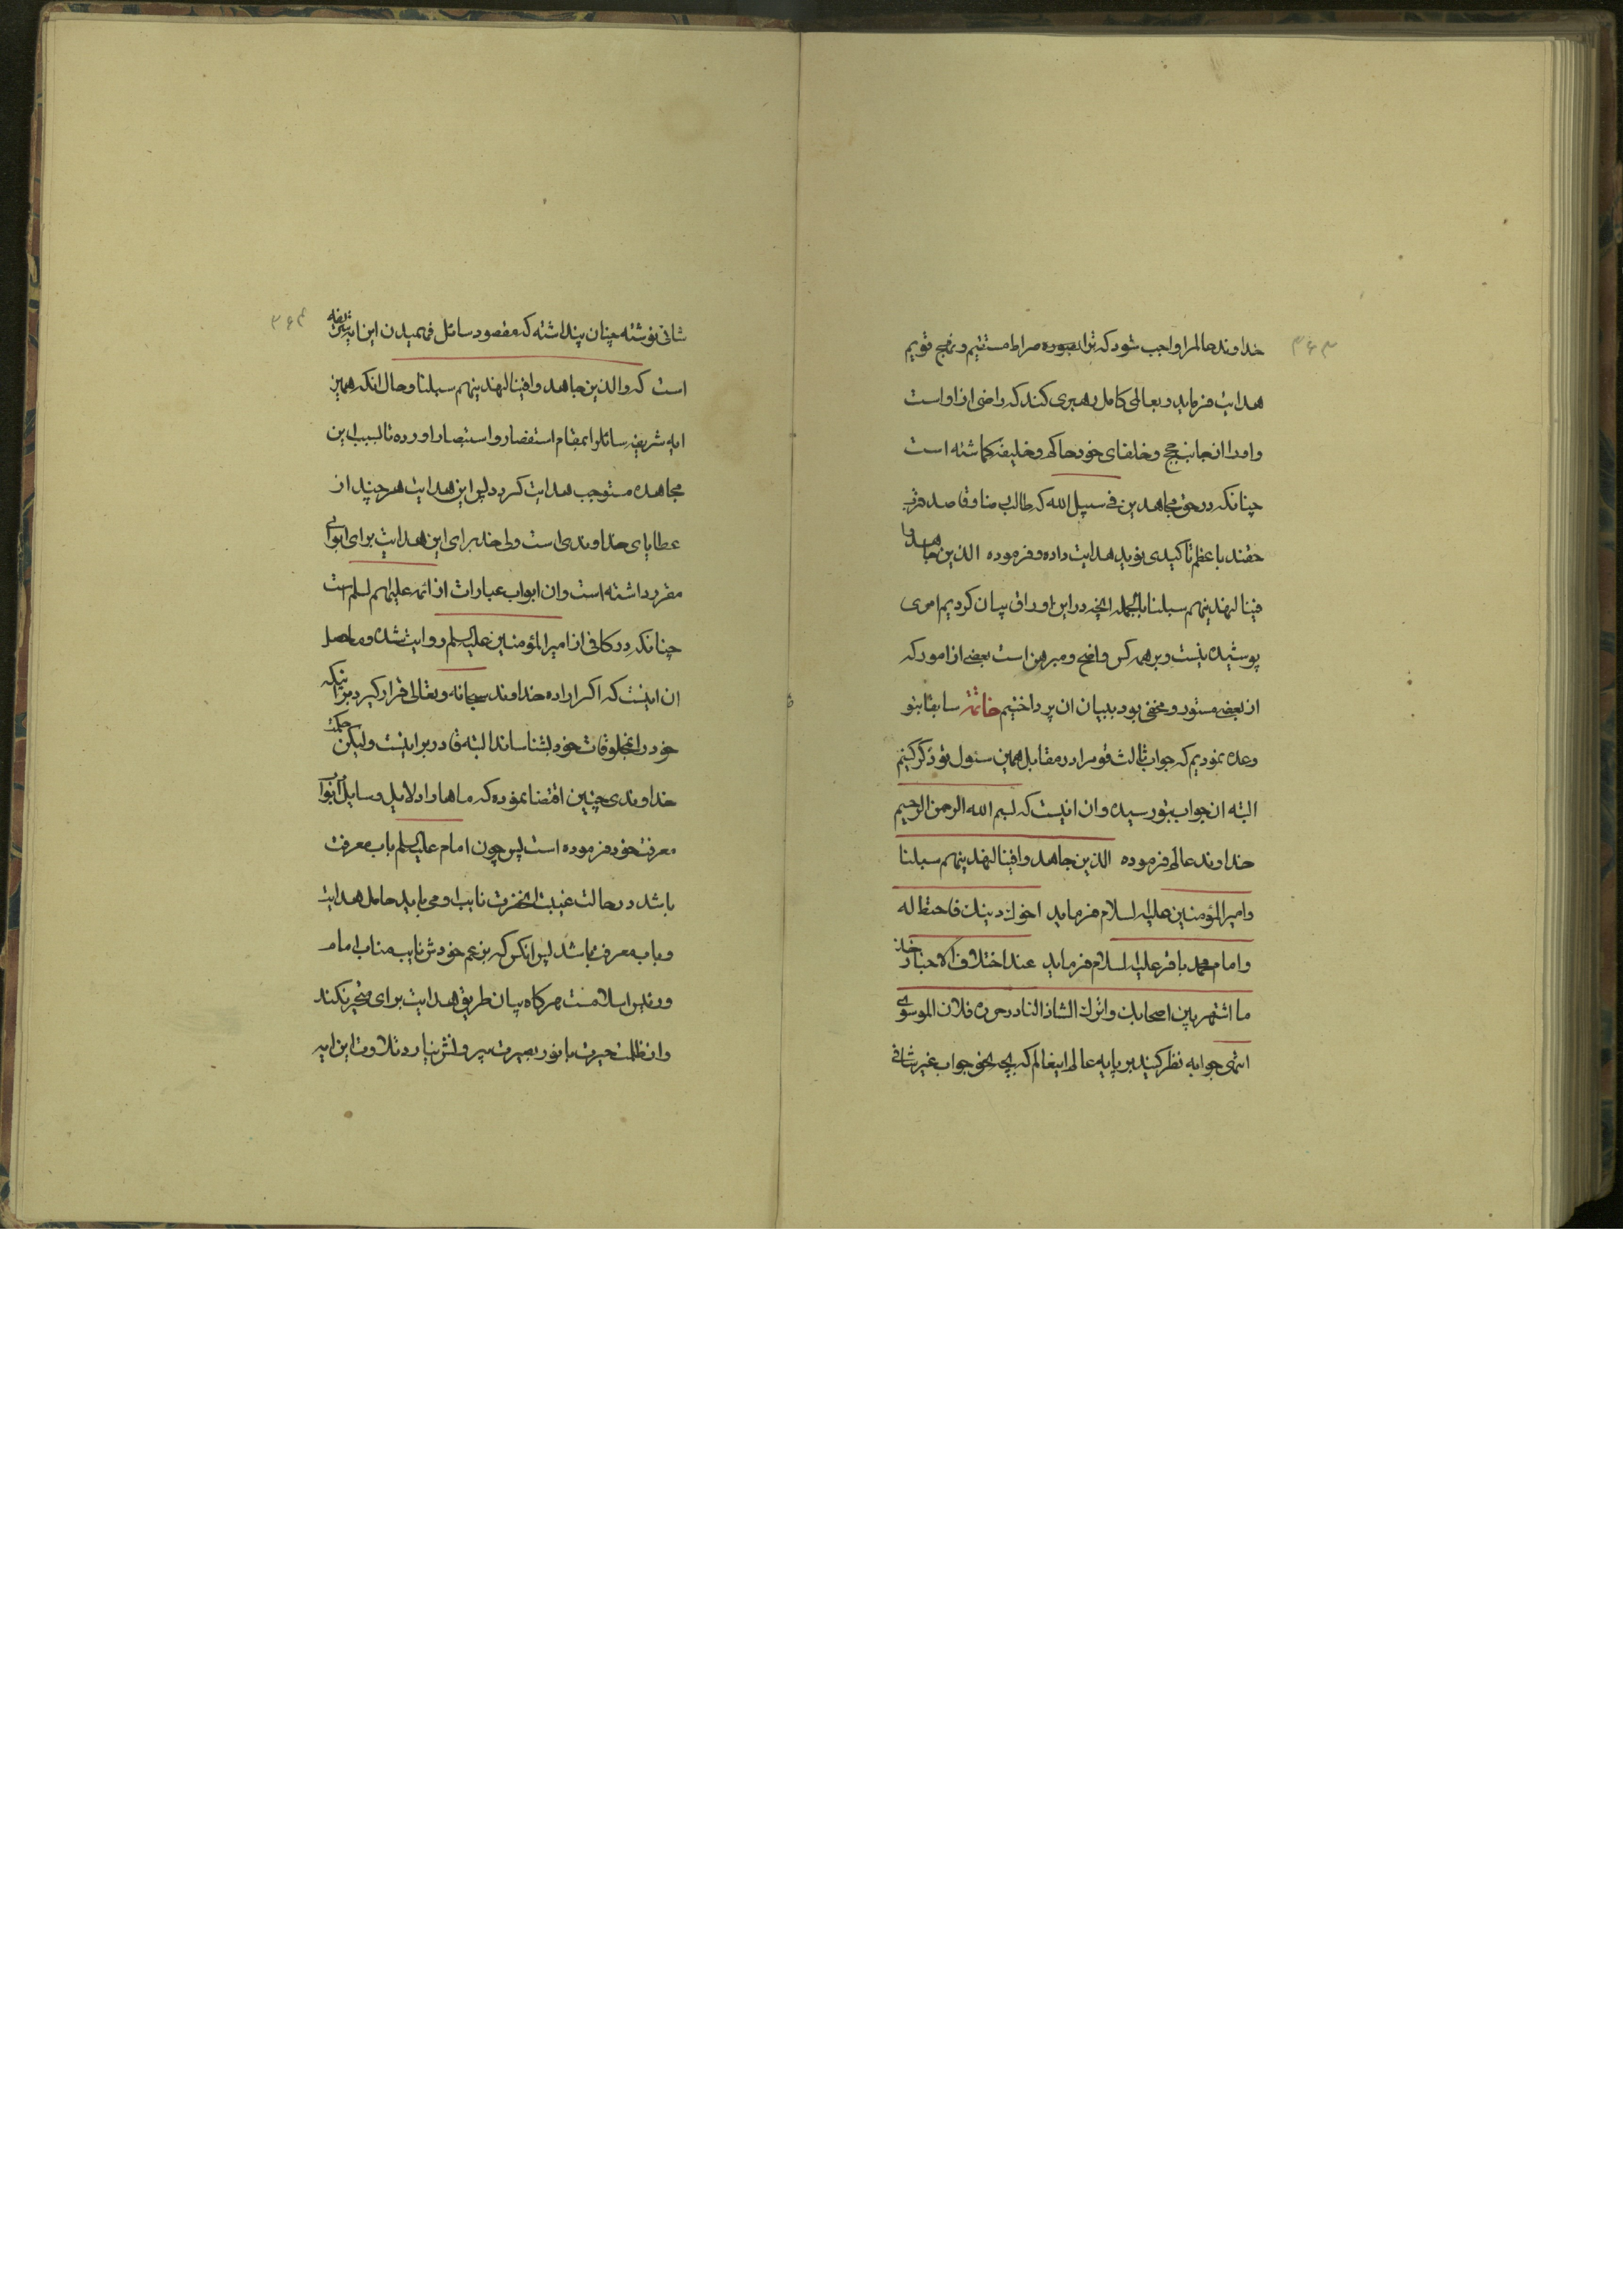 ۳۶۳
خداوند عالم را واجب شود که ترا بصوره صراط مستقیم و نهج قویم
هدایت فرماید و بعالمی کامل رهبری کند که راضی از او است
و او را از جانب حجج و خلفای خود حاکم و خلیفه کماشته است
چنانکه در حق مجاهدین فی سبیل الله که طالب رضا و قاصد قرب
حقند باعظم تاکیدی نوید هدایت داده و فرموده الذین جاهدوا
فینا لنهدینهم سبلنا بالجمله انچه در این اوراق بیان کردیم امری
پوشیده نیست و بر همه کس واضح و مبرهن است بعضی از امور که
از بعضی مستور و مخفی بود ببیان ان پرداختیم خاتمة سابقا بتو
وعده نمودیم که جواب ثالث قوم را در مقابل همین سئول تو ذکر کنیم
البته ان جواب بتو رسیده و ان اینست که بسم الله الرحمن الرحیم
خداوند عالم فرموده الذین جاهدوا فینا لنهدینهم سبلنا
و امیر المؤمنین علیه السلام فرماید اخوک دینک فاحتط له
و امام محمد باقر علیه السلام فرماید عند اختلاف الاخبار خذ
ما اشتهر بین اصحابک و اترک الشاذ النادر حرره فلان الموسوی
انتهی جوابه نظر کنید بر پایه عالم اینعالم که بچه نحو جواب غیر شافی
۳۶۴
شافی نوشته چنان پنداشته که مقصود سائل فهمیدن این ایه شریفه
است که والذین جاهدوا فینا لنهدینهم سبلنا و حال انکه همین
ایه شریفه سائل را بمقام استفسار و استبصار اورده تا بسبب این
مجاهده مستوجب هدایت کردد پس این هدایت هر چند از
عطایای خداوندی است ولی خدا برای این هدایت برای ابوابی
مقرر داشته است و ان ابواب عبارات از ائمه علیهم السلم است
چنانکه در کافی از امیر المؤمنین علیه السلم روایت شده و ماحصل
ان اینست که اکر اراده خداوند سبحانه و تعالی قرار کیرد بر انیکه
خود را بمخلوقات خود بشناساند البته قادر بر اینست ولیکن حکمت
خداوندی چنین اقتضا نموده که ماها را دلایل و سایل و ابواب
معرفت خود فرموده است پس چون امام علیه السلم باب معرفت
باشد در حالت غیبت انحضرت نایب او می باید حامل هدایت
و باب معرفت باشد پس انکس که بزعم خودش نایب مناب امام
و رئیس اسلامست هر کاه بیان طریق هدایت برای متحیر نکند
و از ظلمت حیرت با نور بصیرت بیرونش نیارد تلاوت این ایه